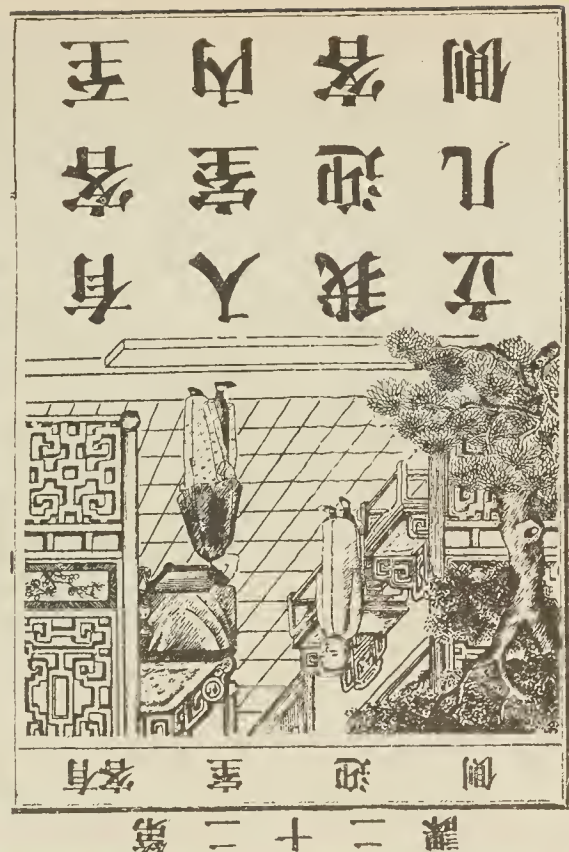 第二十二課
有客 室 迎 側
有客至
入室內
我迎客
立几側